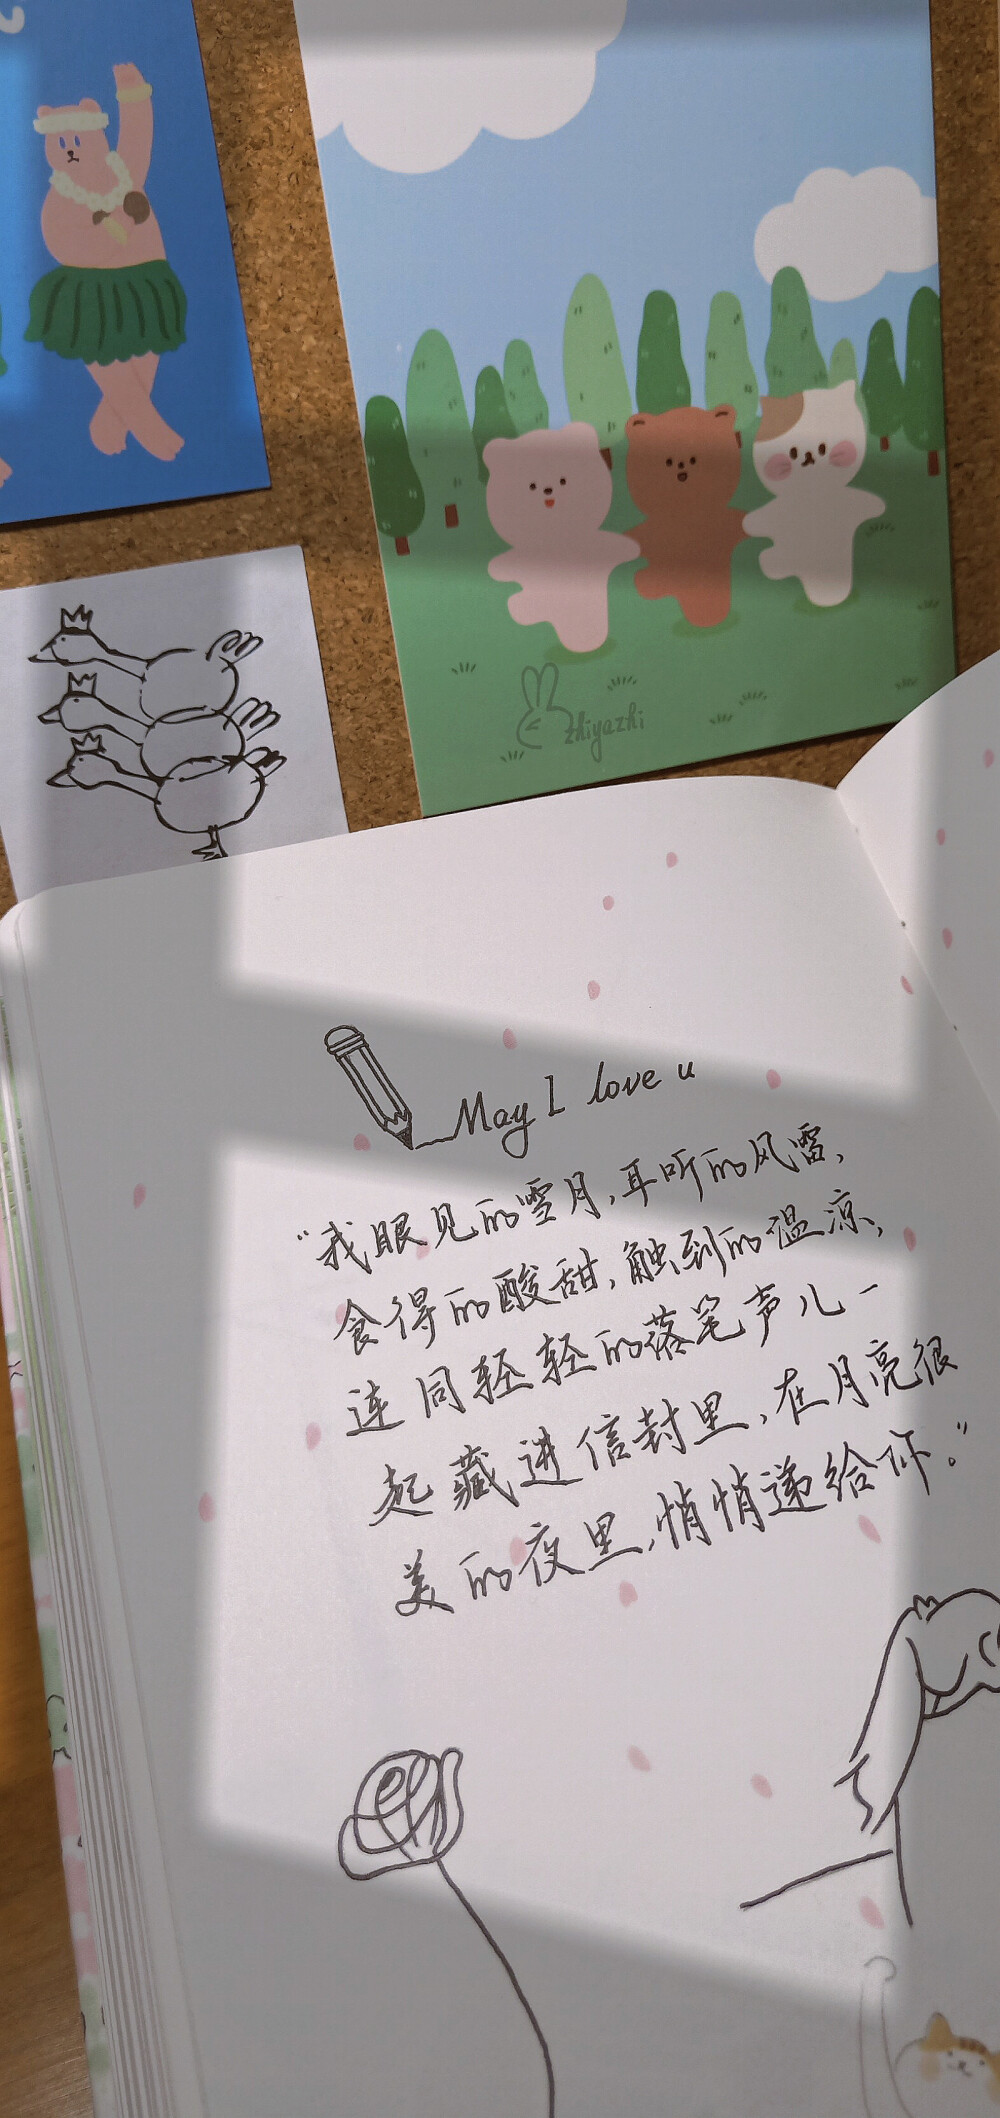 zhiyazhi
May I love u
“我眼见的雪月,耳听的风雷,
食得的酸甜,触到的温凉,
连同轻轻的落笔声儿一
起藏进信封里,在月亮很
美的夜里,悄悄递给你。”